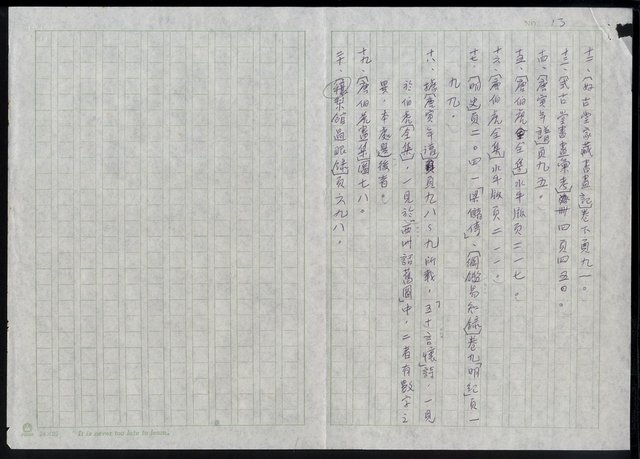 NO. 13
十二、「好古堂家藏書畫記」卷下頁九一。
十三、「式古堂書畫彙考」四頁四五〇。
十四、「唐寅年譜」頁九五。
十五、「唐伯虎全集」水牛版頁二一七。
十六、「唐伯虎全集」水牛版頁二一一。
十七、「明史」頁二〇四一「梁儲傳」、「綱鑑易知錄」卷九「明紀」頁一
九九。
十八、據「唐寅年譜」頁九八~九所載,「五十言懷詩」,一見
於伯虎全集,一見於「西洲話舊圖」中,二者有數字之
異,本處選後者。
十九、「唐伯虎畫集」圖七八。
二十、「穰梨館過眼錄」頁六九八。
24×25 It is never too late to learn.